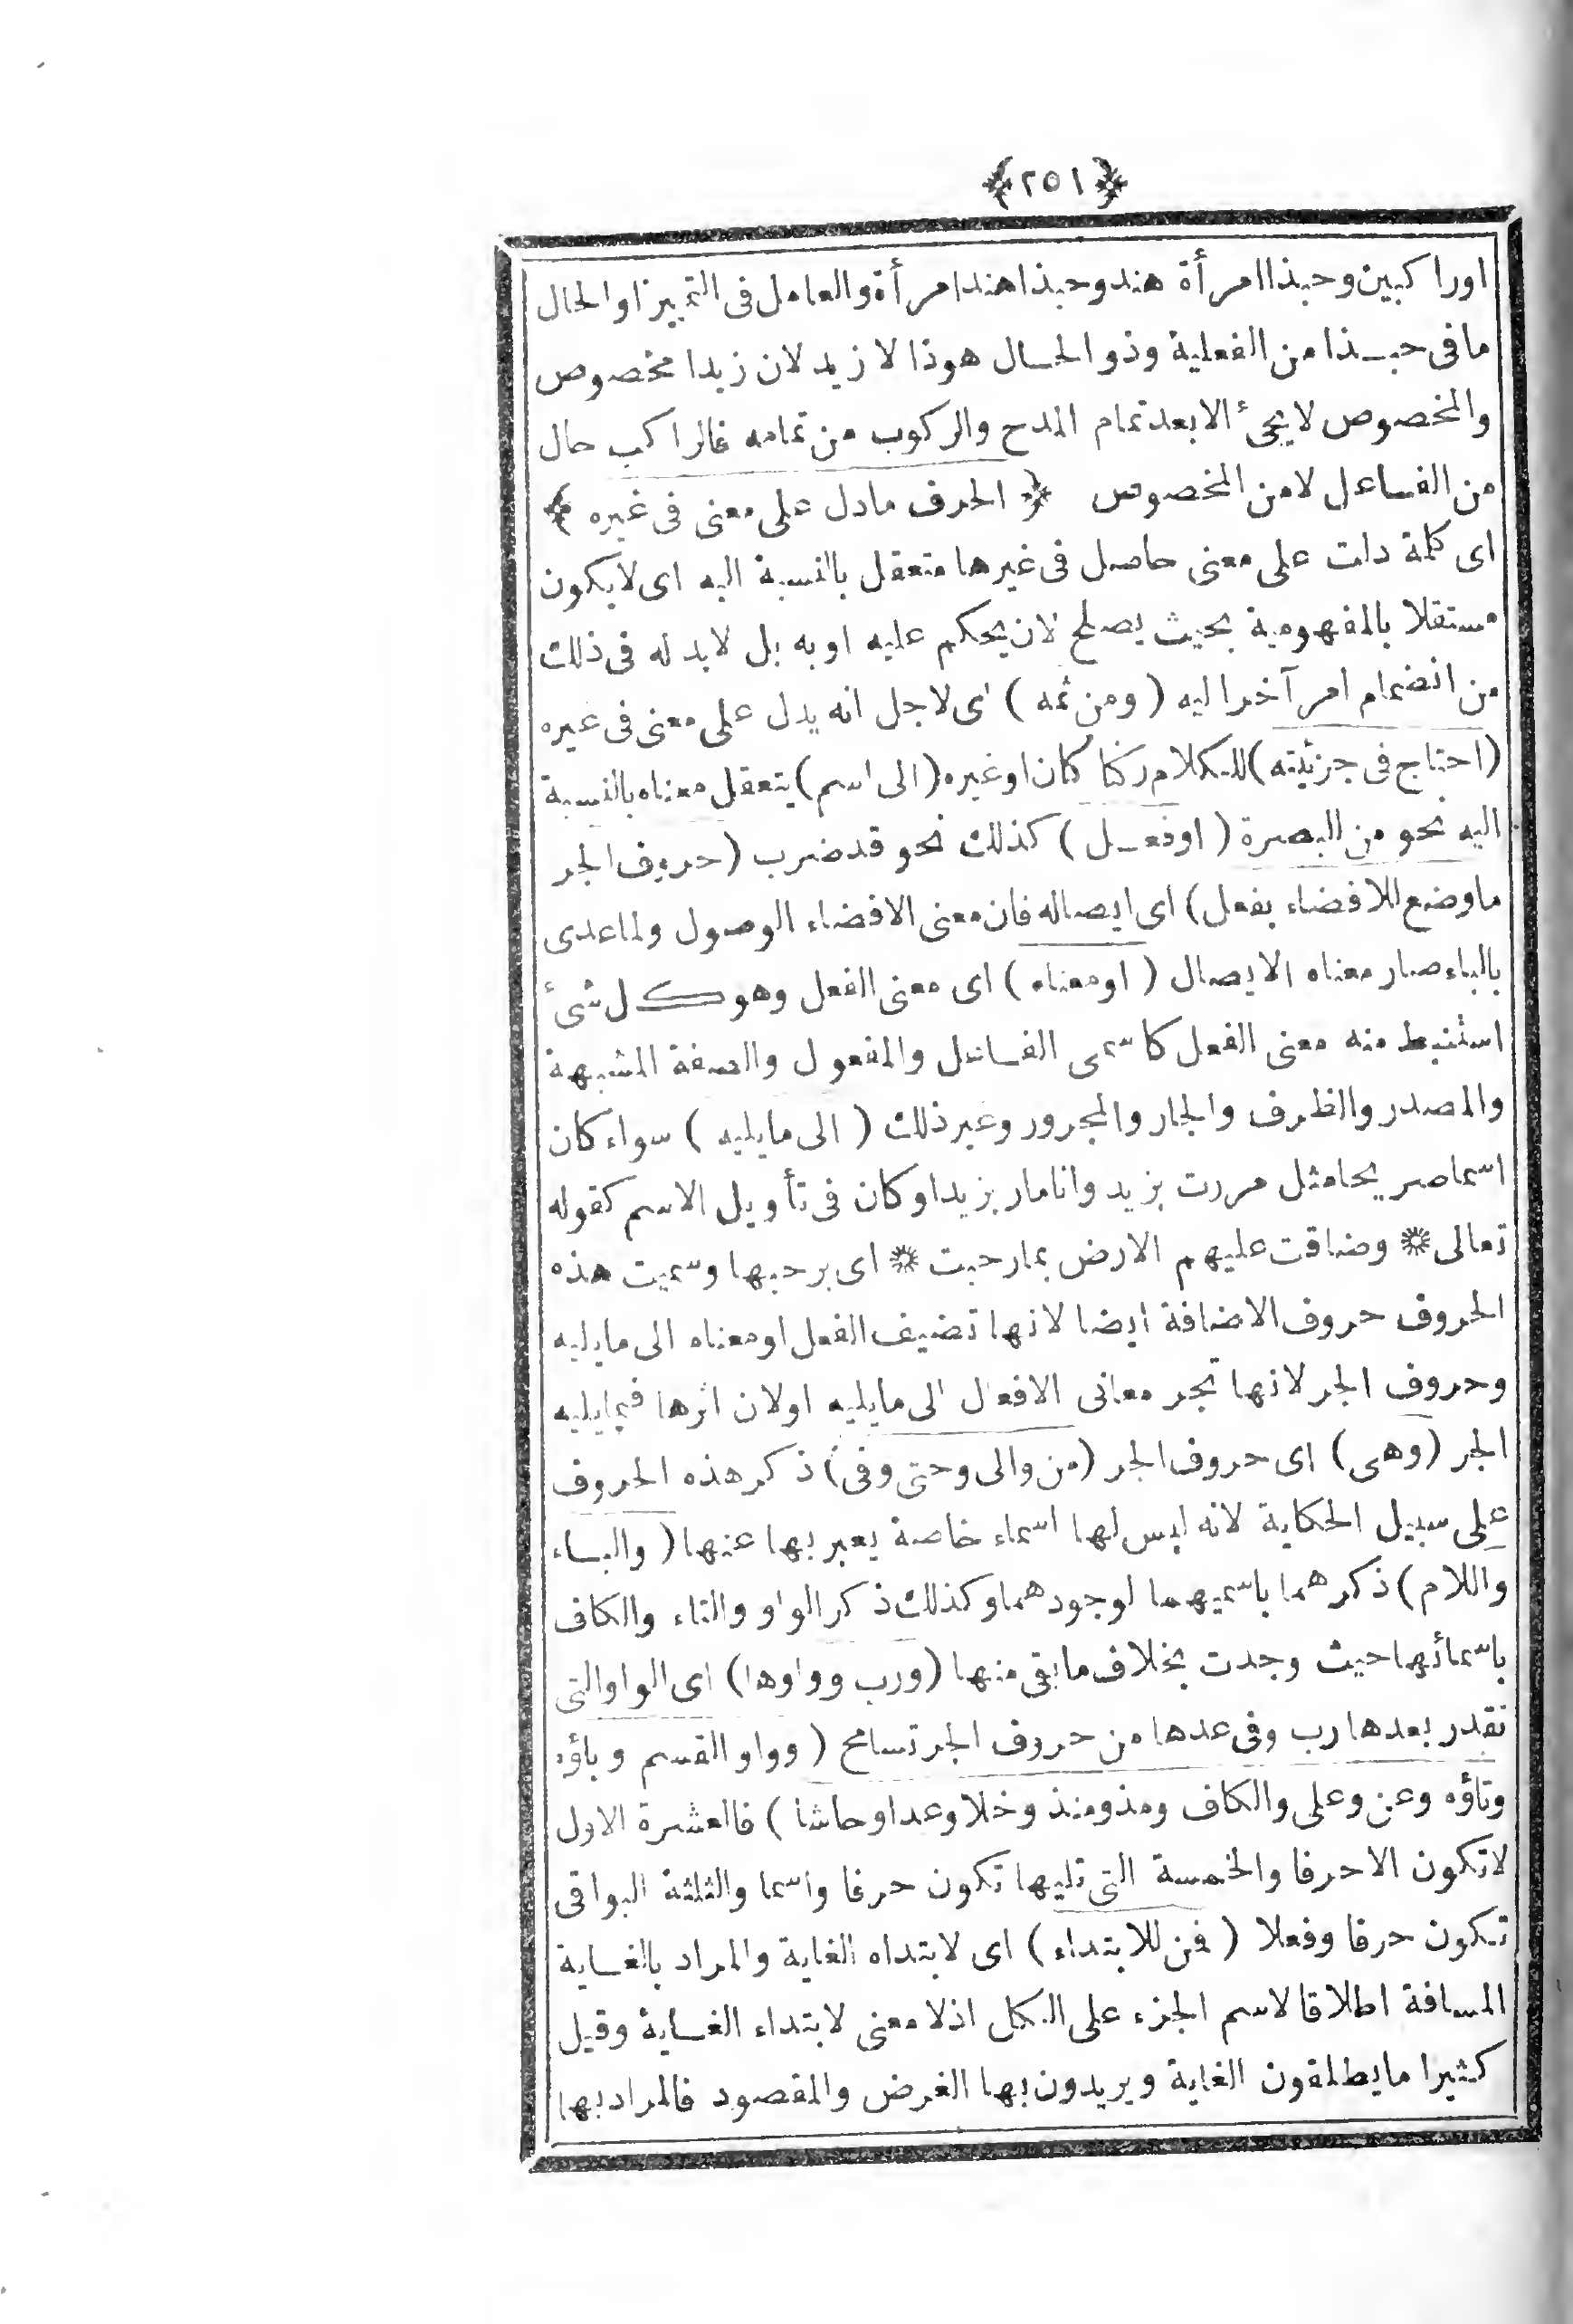 ﴿٢٥١﴾
اوراكبين وحبذا امرأة هند وحبذا هند امرأة والعامل فى التمييز اوالحال
مافى حبذا من الفعلية وذو الحال هوذا لا زيد لان زيدا مخصوص
والمخصوص لايجئ الابعدتمام المدح والركوب من تمامه فالراكب حال
من الفاعل لامن المخصوص ﴿ الحرف مادل على معنى فى غيره ﴾
اى كلمة دلت على معنى حاصل فى غيرها متعقل بالنسبة اليه اى لايكون
مستقلا بالمفهومية بحيث يصلح لان يحكم عليه اوبه بل لابد له فى ذلك
من انضمام امر آخر اليه ( ومن ثمه ) اى لاجل انه يدل على معنى فى غيره
(احتاج فى جزئيته) للكلام ركنا كان اوغيره (الى اسم) يتعقل معناه بالنسبة
اليه نحو من البصرة ( اوفعل ) كذلك نحو قد ضرب (حروف الجر
ماوضع للافضاء بفعل) اى ايصاله فان معنى الافضاء الوصول ولما عدى
بالباء صار معناه الايصال ( اومعناه ) اى معنى الفعل وهو كل شئ
استنبط منه معنى الفعل كاسمى الفاعل والمفعول والصفة المشبهة
والمصدر والظرف والجار والمجرور وغير ذلك ( الى مايليه ) سواء كان
اسما صريحا مثل مررت بزيد وانامار بزيد اوكان فى تأويل الاسم كقوله
تعالى ۞ وضاقت عليهم الارض بمارحبت ۞ اى برحبها وسميت هذه
الحروف حروف الاضافة ايضا لانها تضيف الفعل اومعناه الى مايليه
وحروف الجر لانها تجر معانى الافعال الى مايليه اولان اثرها فيمايليه
الجر (وهى) اى حروف الجر (من والى وحتى وفى) ذكر هذه الحروف
على سبيل الحكاية لانه ليس لها اسماء خاصة يعبر بها عنها ( والباء
واللام) ذكرهما باسميهما لوجودهما وكذلك ذكر الواو والتاء والكاف
باسمائها حيث وجدت بخلاف مابقى منها (ورب وواوها) اى الواو التى
نقدر بعدها رب وفى عدها من حروف الجر تسامح ( وواو القسم وباؤه
وتاؤه وعن وعلى والكاف ومذ ومنذ وخلا وعدا وحاشا ) فالعشرة الاول
لاتكون الاحرفا والخمسة التى تليها تكون حرفا واسما والثلثة البواقى
تكون حرفا وفعلا ( فمن للابتداء ) اى لابتداء الغاية والمراد بالغاية
المسافة اطلاقا لاسم الجزء على الكل اذلا معنى لابتداء الغاية وقيل
كثيرا مايطلقون الغاية ويريدون بها الغرض والمقصود فالمراد بها